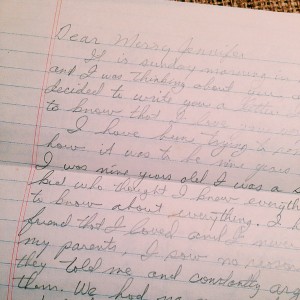 Dear Merry Jennifer
It is sunday morning in
and I was thinking about our
decided to write you a letter
to know that I love you
I have been trying
how it was to be nine years
I was nine years old I was a
kid who thought I knew everything
to know about everything. I
friend that I loved and I never
my parents, I saw no reason
they told me and constantly arg
them. We had